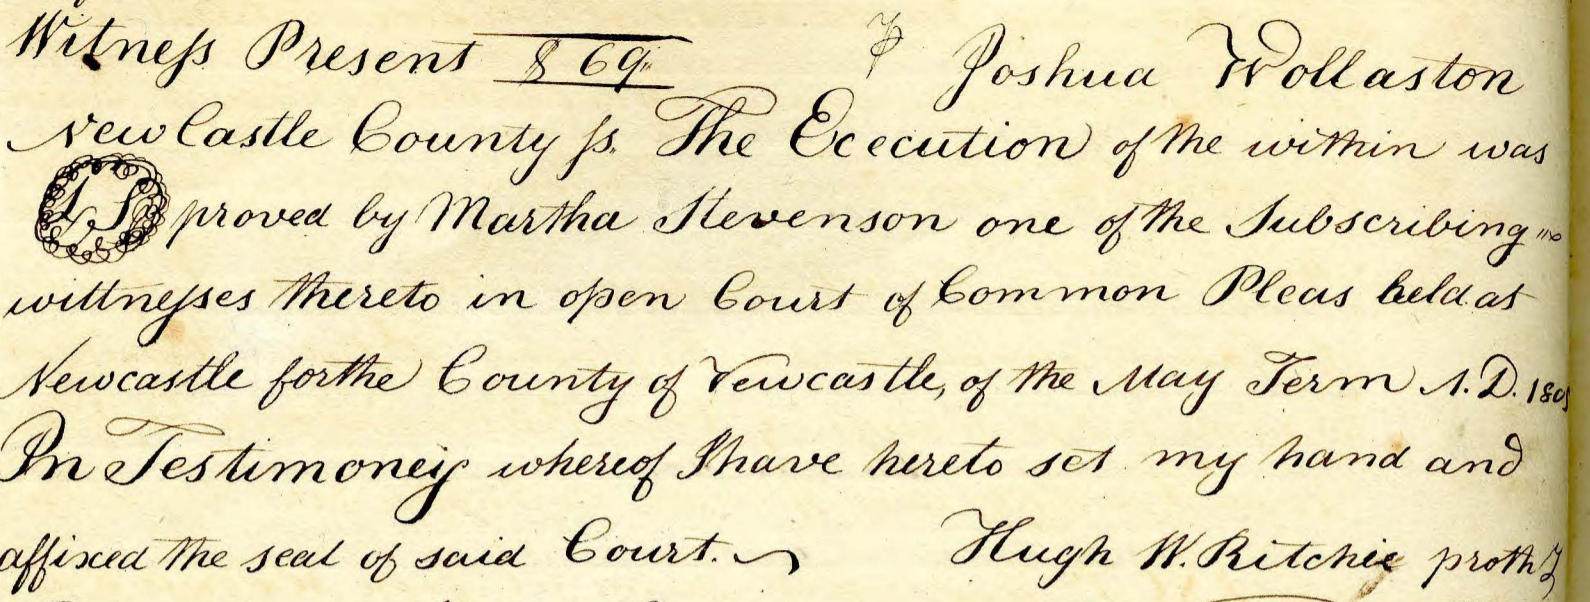 Witness Present $69 ⅌ Joshua Wollaston
New Castle County ss. The Excecution of the within was
LS proved by Martha Stevenson one of the Subscribing
wittnesses thereto in open Court of Common Pleas held at
Newcastle for the County of Newcastle, of the May Term A.D.
In Testimoney whereof I have hereto set my hand and
affixed the seal of said Court. Hugh W. Ritchie prothy